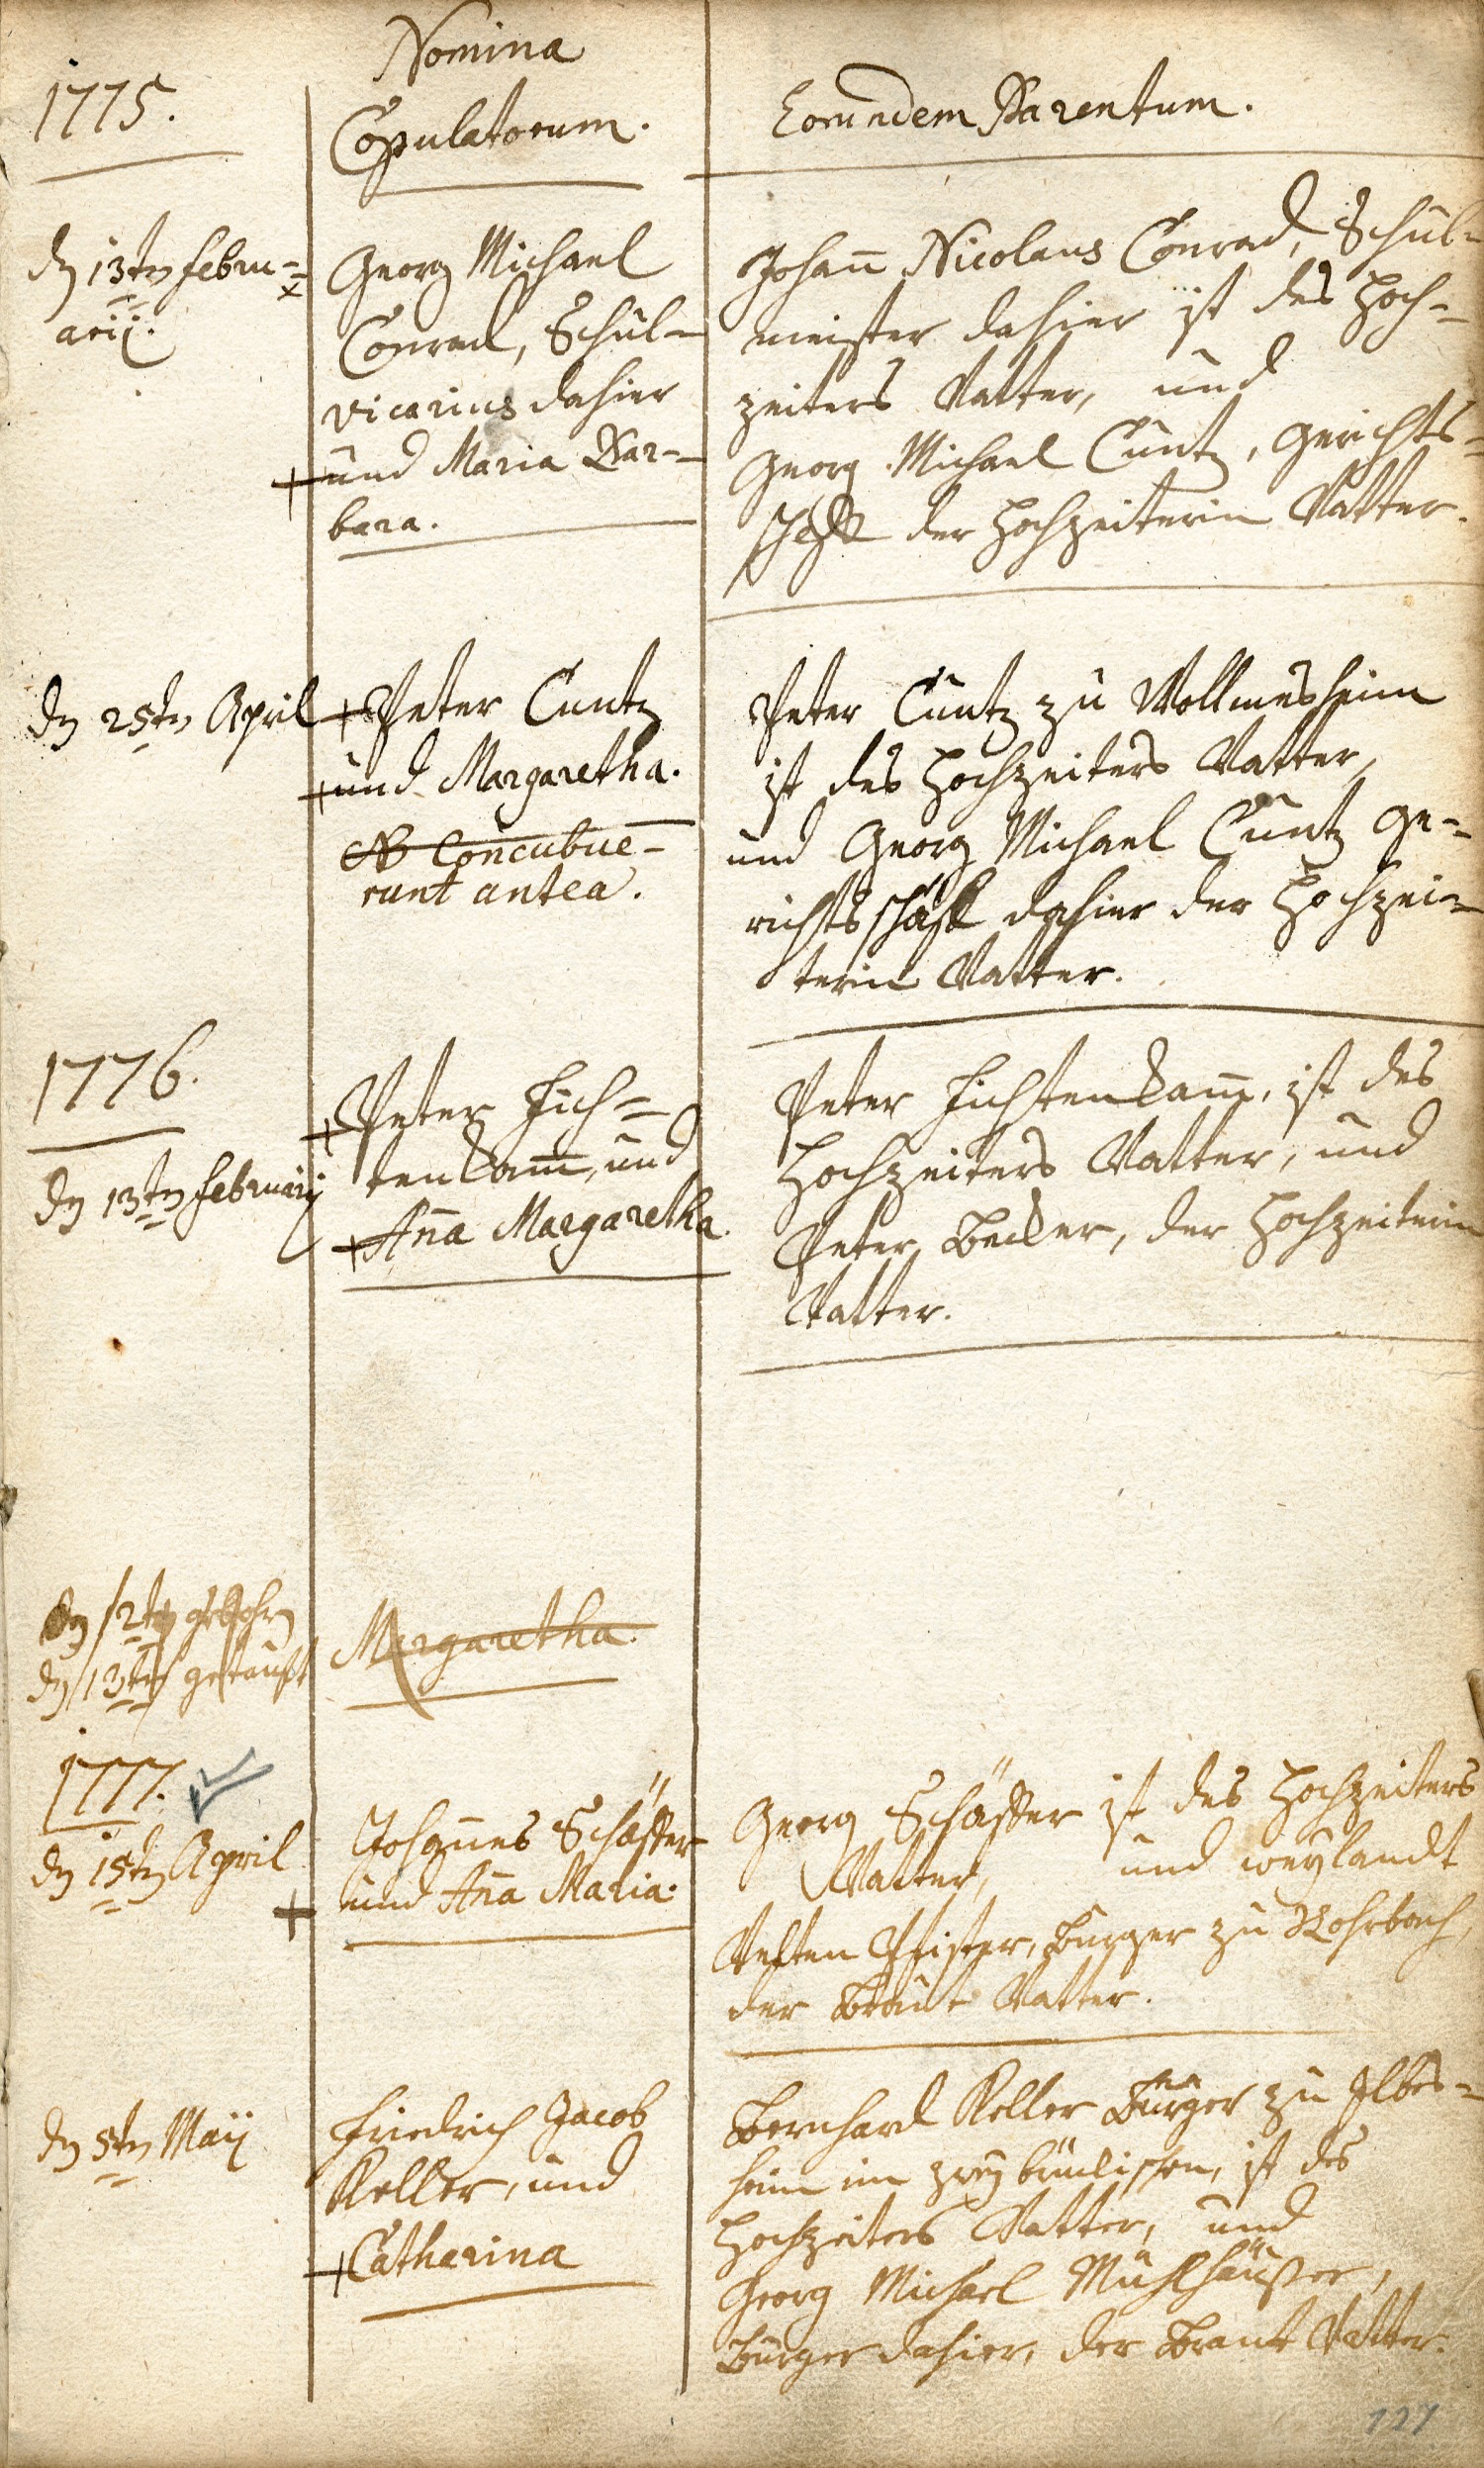 1775.
Nomina
Copulatorum.
Eorundem Parentum.
dn 13tn Febru=
arii.
Georg Michael
Conrad, Schul-
vicarius dahier
und Maria Bar-
bara.
Johann Nicolaus Conrad, Schul-
meister dahier ist des Hoch-
zeiters Vatter, und
Georg Michael Cuntz, Gerichts-
schöff der Hochzeiterin Vatter.
dn 25tn April
Peter Cuntz
und Margaretha.
NB Concubue-
runt antea.
Peter Cuntz zu Wollmesheim
ist des Hochzeiters Vatter,
und Georg Michael Cuntz Ge-
richtsschöff dahier der Hochzei-
terin Vatter.
1776.
dn 13tn Februarij
Peter Fich=
tenkam̅, und
An̅a Margaretha.
Peter Fichtenkam̅, ist des
Hochzeiters Vatter, und
Peter Becker, der Hochzeiterin
Vatter.
dn 12tn gebohrn
dn 13tn getauft
Margaretha.
1777.
dn 15tn April
Johannes Schäffer
und An̅a Maria.
Georg Schäffer ist des Hochzeiters
Vatter, und weylandt
Velten Pfister, Burger zu Rohrbach,
der Braut Vatter.
dn 5tn Maij
Friedrich Jacob
Keller, und
Catharina
Bernhard Keller Bürger zu Ilbes=
heim im Zweybrückischen, ist des
Hochzeiters Vatter, und
Georg Michael Mühlhäußer,
Burger dahier, der Braut Vatter.
127